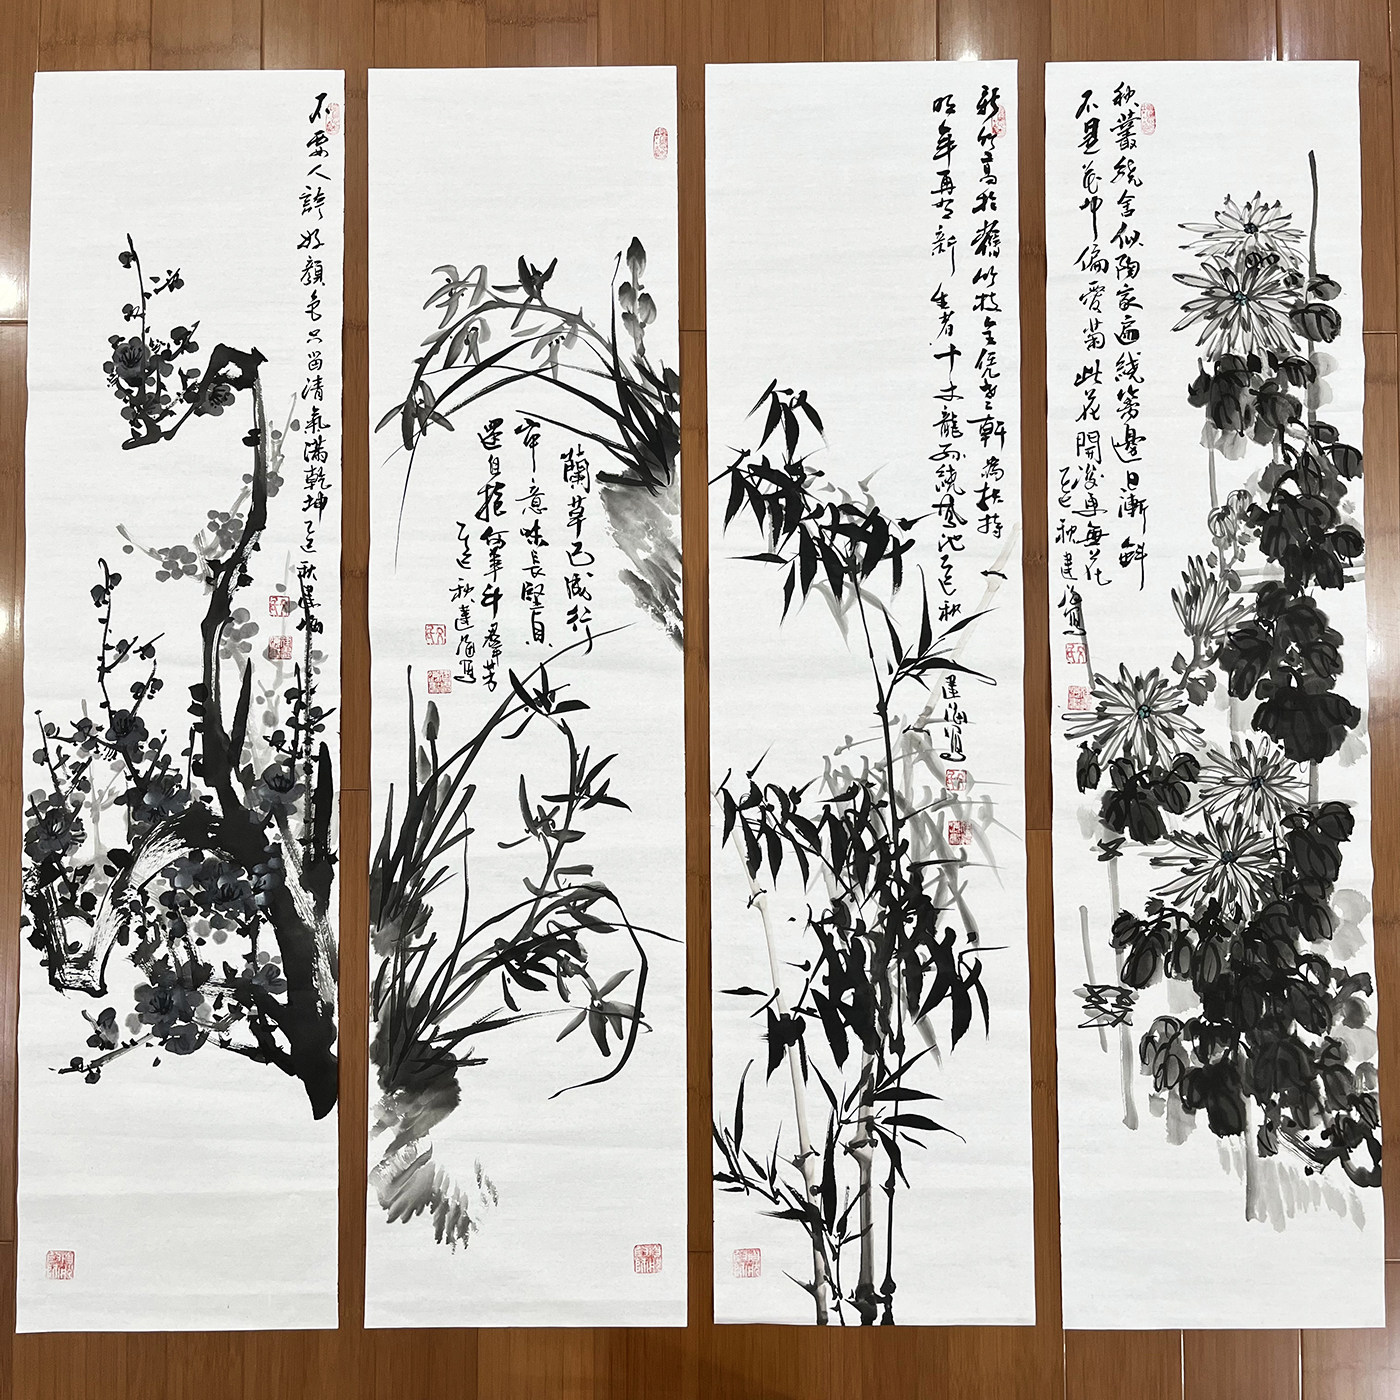 不要人誇好顏色只留清氣滿乾坤乙巳秋建海
蘭草已成行
山中意味長堅貞
還自抱何事斗羣芳
乙巳秋建海寫
新竹高於舊竹枝全凭老幹為扶持
明年再有新生者十丈龍孫繞鳳池乙巳秋
建海寫
秋叢繞舍似陶家遍繞籬邊日漸斜
不是花中偏愛菊此花開後更無花
乙巳秋建海寫